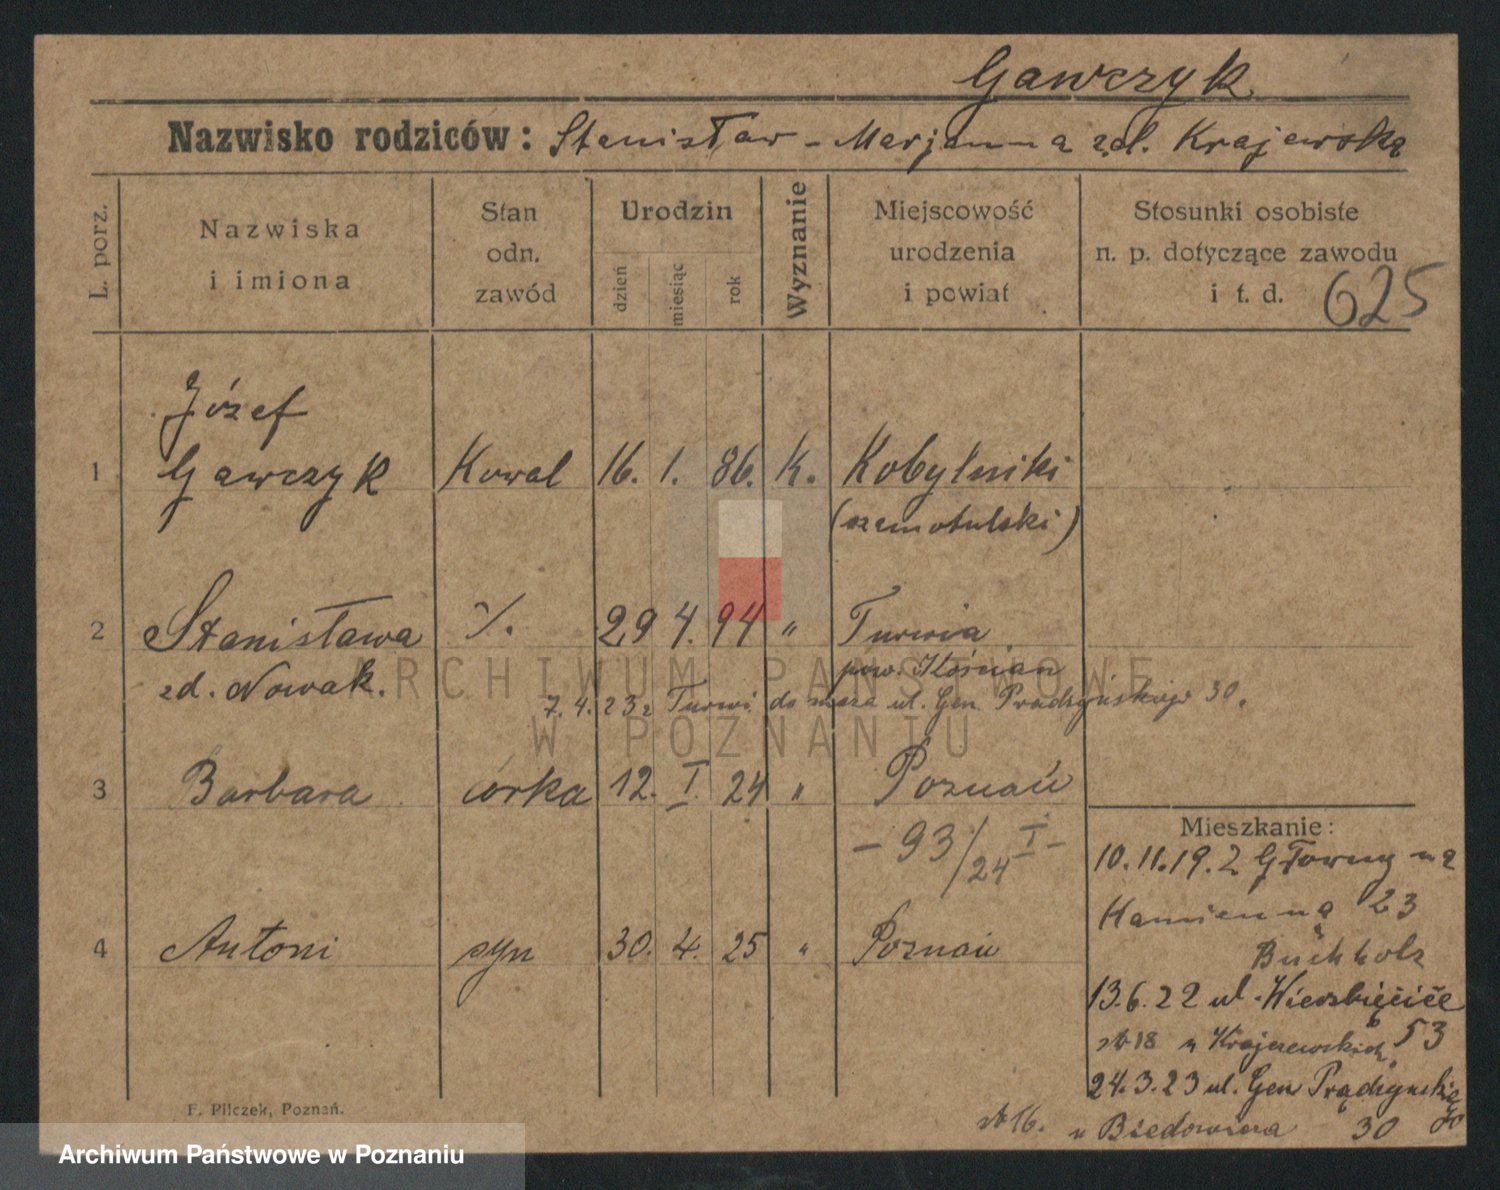 Gawczyk
Nazwisko rodziców: Stanisław - Marjanna zd. Krajewska
L. porz.
Nazwiska
i imiona
Stan
odn.
zawód
Urodzin
dzień
miesiąc
rok
Wyznanie
Miejscowość
urodzenia
i powiat
Stosunki osobiste
n. p. dotyczące zawodu
i t. d. 625
Józef
1 Gawczyk Kowal 16. 1. 86. K. Kobylniki
(szamotulski)
2 Stanisława ./. 29 4. 94 " Turwia
zd. Nowak. pow. Kościan
7.4.23 z Turwi do męża ul. Gen Prądzyńskiego 30.
3 Barbara córka 12. I. 24 " Poznań
- 93/24 I -
4 Antoni syn 30. 4. 25 " Poznań
Mieszkanie:
10.11.19. z Główny na
Kamienną 23
Buchholz
13.6.22 ul. Wierzbięcice
53
18 u Krajewskich
24.3.23 ul. Gen Prądzyńskiego
16. u Biedowicza 30
F. Pilczek, Poznań.
ARCHIWUM PAŃSTWOWE
W POZNANIU
Archiwum Państwowe w Poznaniu